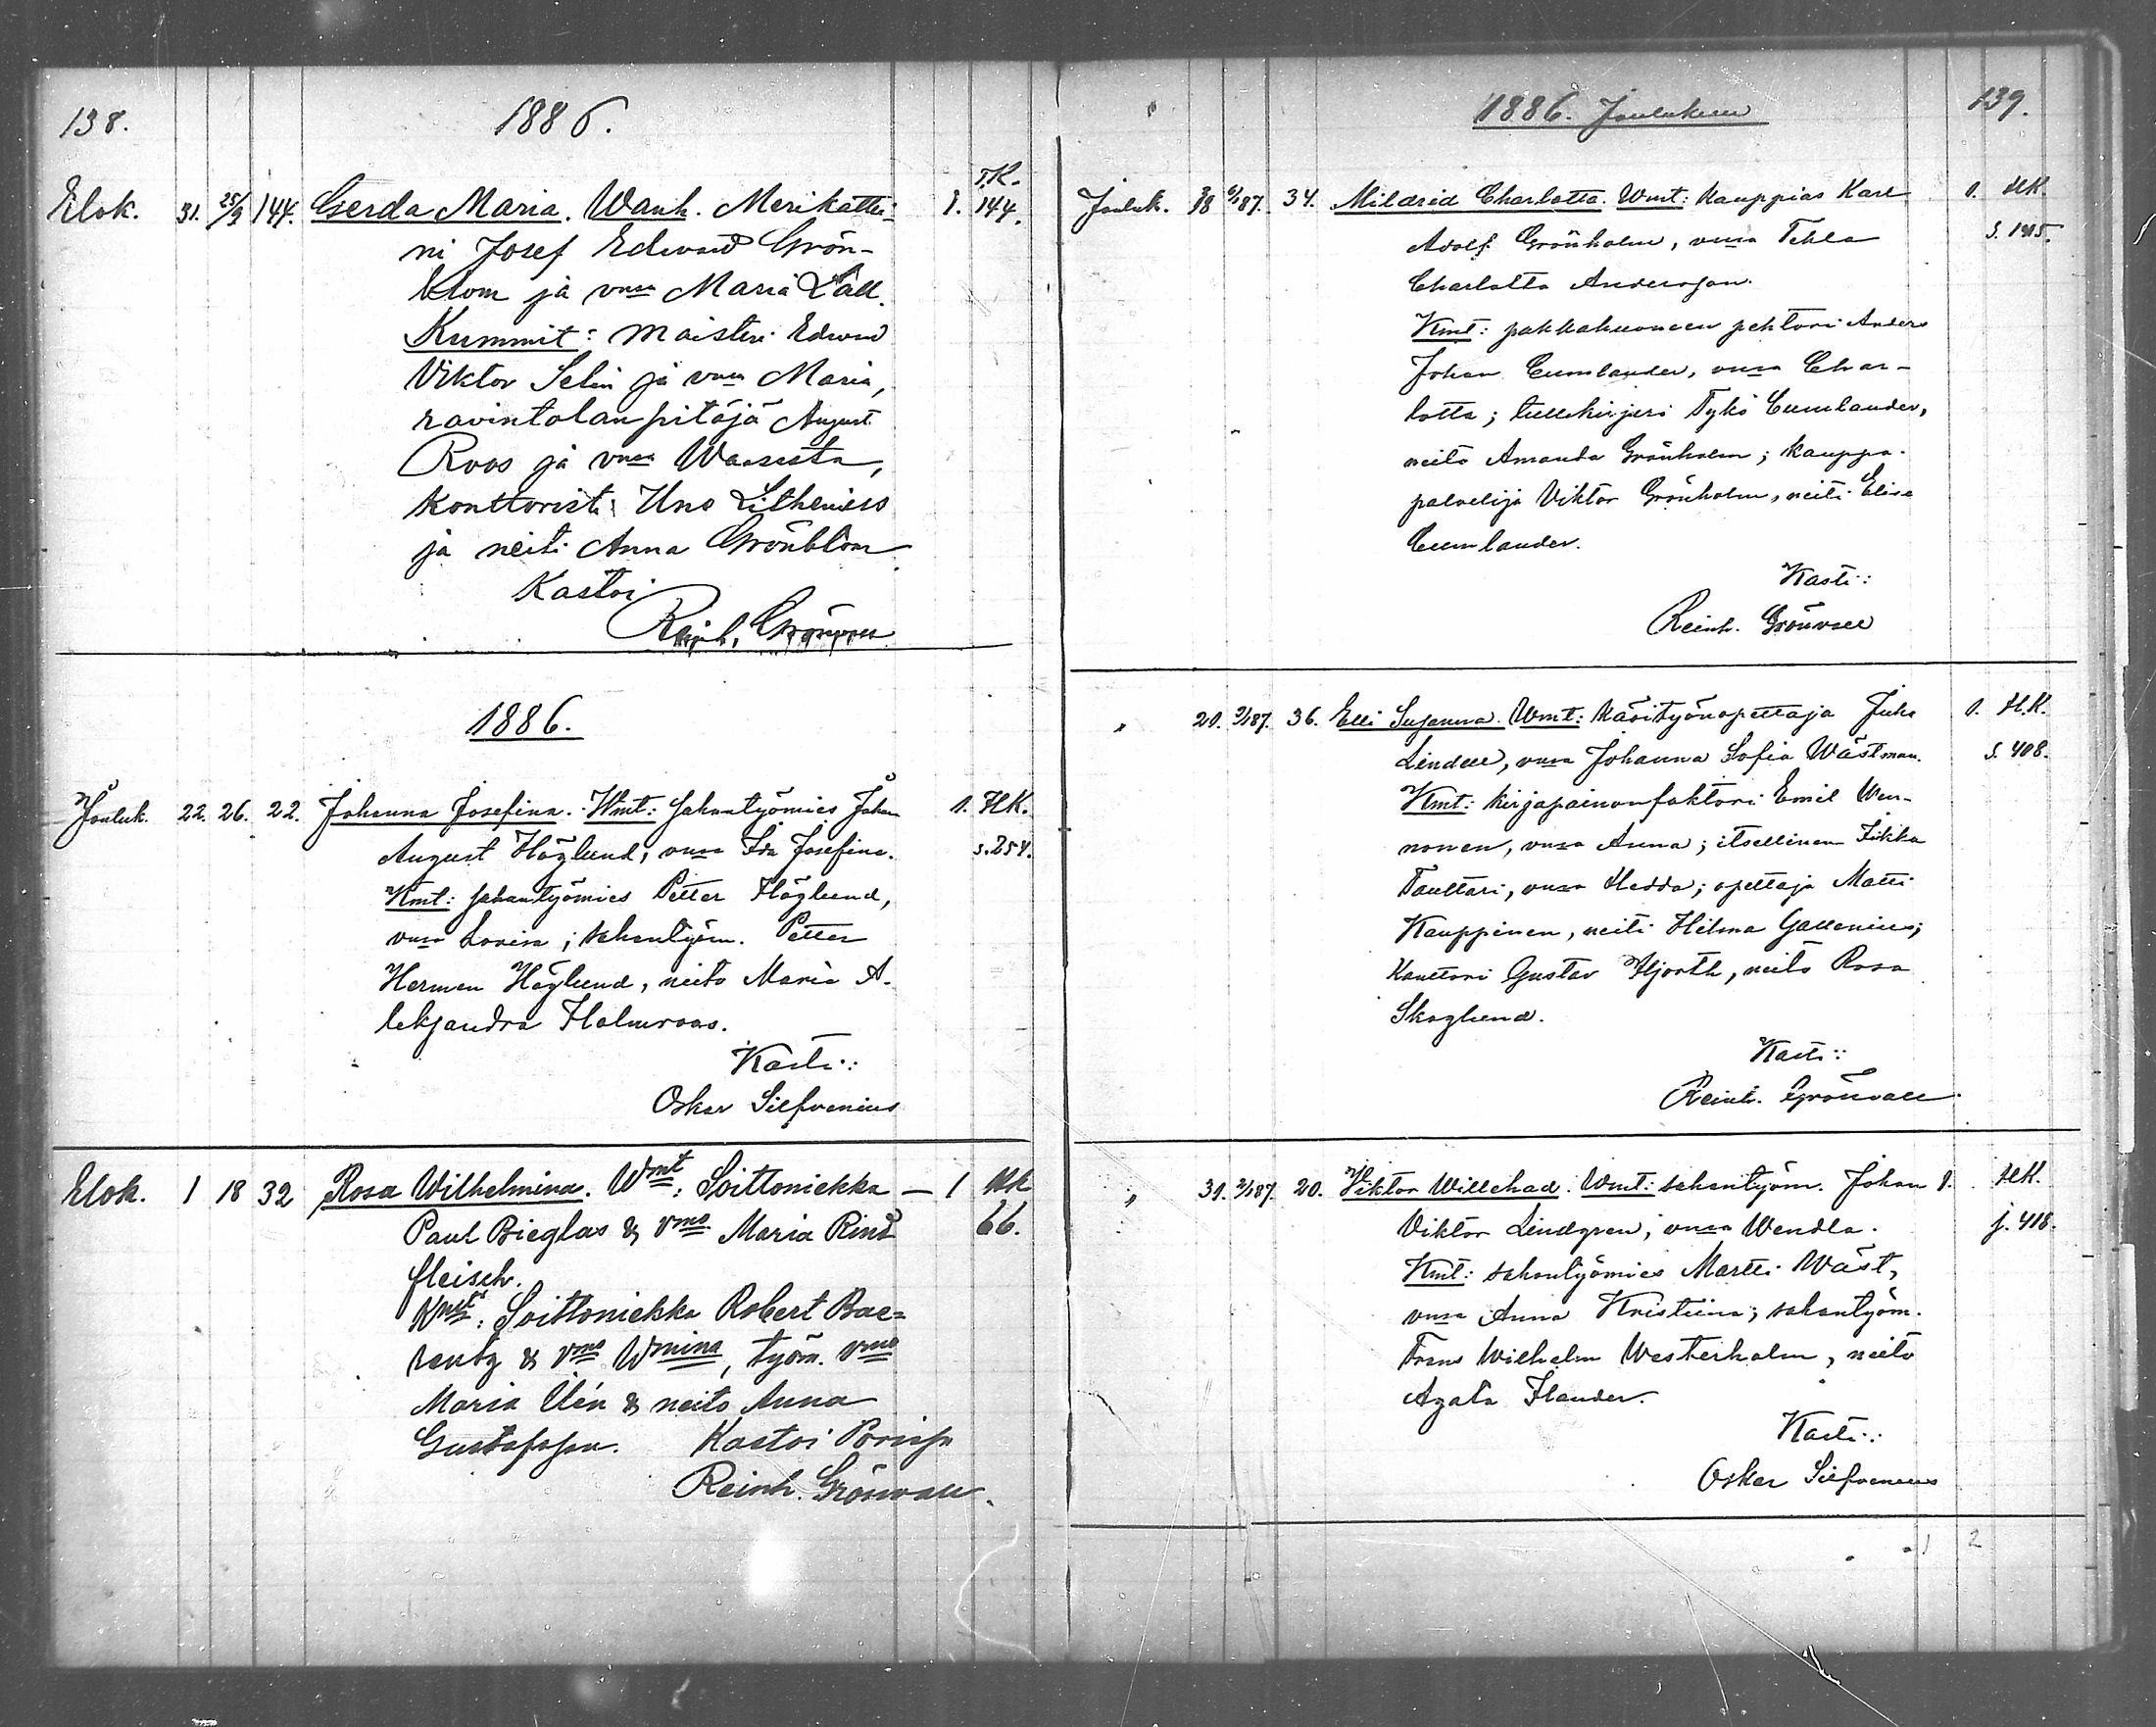 138.
1886.
T.K.
Elok. 31. 25/9 144. Gerda Maria. Wanh. Merikattei- 1. 144.
ni Josef Edward Grön-
blom ja vmsa Maria Läll.
Kummit: Maisteri Edward
Viktor Selin ja vmsa Maria,
ravintolanpitäjä August
Roos ja vmsa Waasasta,
Konttoristi Uno Lithenius
ja neiti Anna Grönblom.
Kastoi
Reinh. Grönvall
1886.
Jouluk. 22. 26. 22. Johanna Josefina. Wmt: sahantyömies Johan 1. HK.
August Höglund, vmsa Ida Josefina. s. 254.
Kmt: sahantyömies Petter Höglund,
vmsa Lovisa; sahantyöm. Petter
Herman Höglund, neito Maria A-
leksandra Holmroos.
Kasti:
Oskar Silfvenius
Elok. 1 18 32 Rosa Wilhelmina. Wmt: Soittoniekka — 1 HK
Paul Bieglas & vmo Maria Rind 66.
fleisch.
Kmt: Soittoniekka Robert Bae=
rentz & vmo Wmina, työm. vmo
Maria Ulén & neito Anna
Gustafsson. Kastoi Porissa
Reinh. Grönvall.
1886. Joulukuu
139.
Jouluk. 18 6/1 87. 34. Mildrid Charlotta. Wmt: Kauppias Karl 1. HK.
Adolf Grönholm, vmsa Tekla
Charlotta Andersson.
Kmt: pakkahuoneen pehtori Anders
Johan Cumlander, vmsa Char-
lotta; tullikirjuri Tykö Cumlander,
neito Amanda Grönholm; kauppa-
palvelija Viktor Grönholm, neiti Elise
Cumlander.
Kasti:
Reinh. Grönvall
" 20. 9/1 87. 36. Elli Susanna. Wmt: Käsityönopettaja Juho 1. H.K.
Lindell, vmsa Johanna Sofia Wästman. s. 408.
Kmt: kirjapainonfaktori Emil Wen-
nonen, vmsa Anna; itsellinen Iikka
Tauttari, vmsa Hedda; opettaja Matti
Kauppinen, neiti Hilma Gallenius;
Kanttori Gustav Hjorth, neito Rosa
Skoglund.
Kasti:
Reinh. Grönvall.
" 31. 2/1 87. 20. Viktor Willehad. Wmt: sahantyöm. Johan 1. HK.
Viktor Lindgren, vmsa Wendla. s. 418.
Kmt: sahantyömies Martti Wäst,
vmsa Anna Kristiina; sahantyöm.
Frans Wilhelm Westerholm, neito
Agata Flander.
Kasti:
Oskar Silfvenius
1 2